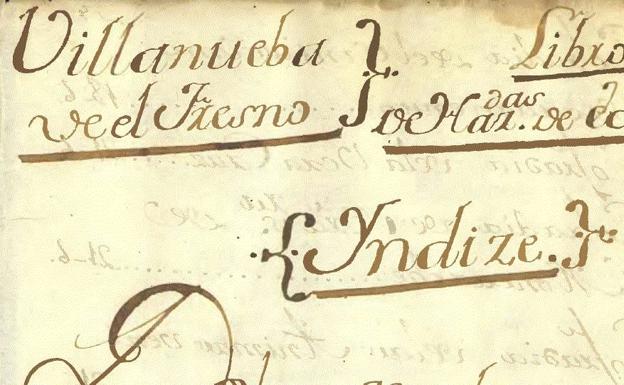 Villanueba
de el Fresno
Libro
de Haz.das de
Yndize.